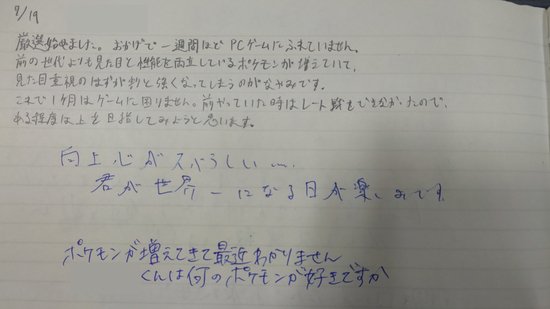 9/19
厳選始めました。おかげで一週間ほどPCゲームにふれていません。
前の世代よりも見た目と性能を両立しているポケモンが増えていて、
見た目重視のはずが割と強くなってしまうのがなやみです。
これで1ヶ月はゲームに困りません。前やっていた時はレート戦をできなかったので、
ある程度は上を目指してみようと思います。
向上心がスバラしい…
君が世界一になる日が楽しみです
ポケモンが増えてきて最近わかりません
くんは何のポケモンが好きですか